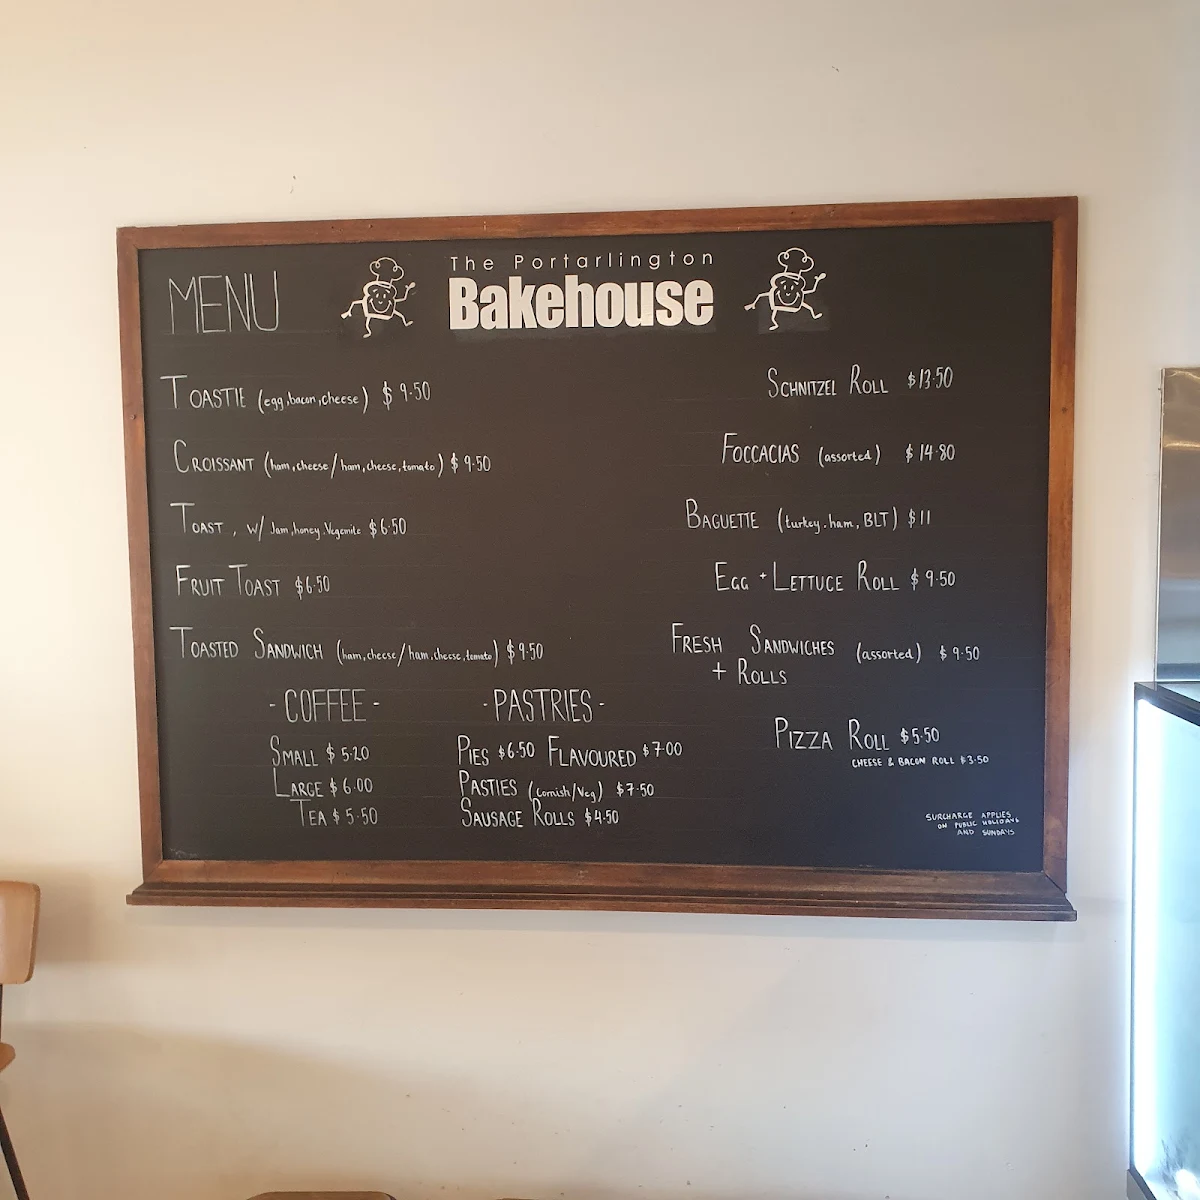 MENU
The Portarlington
Bakehouse
TOASTIE (egg, bacon, cheese) $9.50
CROISSANT (ham, cheese/ham, cheese, tomato) $9.50
TOAST, W/ Jam, honey, Vegemite $6.50
FRUIT TOAST $6.50
TOASTED SANDWICH (ham, cheese/ham, cheese, tomato) $9.50
- COFFEE -
SMALL $5.20
LARGE $6.00
TEA $5.50
- PASTRIES -
PIES $6.50 FLAVOURED $7.00
PASTIES (Cornish/Veg) $7.50
SAUSAGE ROLLS $4.50
SCHNITZEL ROLL $13.50
FOCCACIAS (assorted) $14.80
BAGUETTE (turkey, ham, BLT) $11
EGG + LETTUCE ROLL $9.50
FRESH SANDWICHES (assorted) $9.50
+ ROLLS
PIZZA ROLL $5.50
CHEESE & BACON ROLL $3.50
SURCHARGE APPLIES
ON PUBLIC HOLIDAYS
AND SUNDAYS